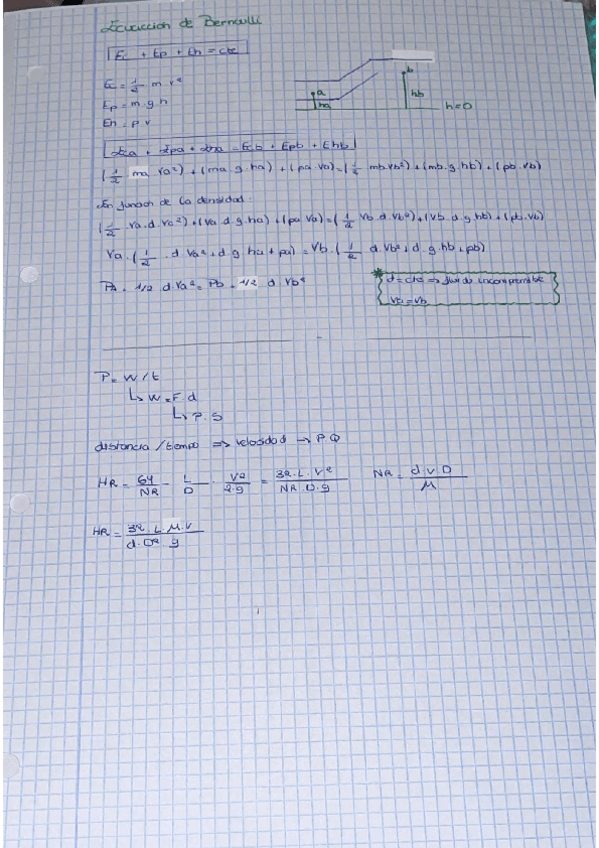 Ecuaccion de Bernoulli
Ec + Ep + Eh = cte
Ec = 1/2 m v²
Ep = m.g.h
Eh = p v
a
ha
b
hb
h=0
Eca + Epa + Eha = Ecb + Epb + Ehb
(1/2 ma va²) + (ma.g.ha) + (pa va) = (1/2 mb.vb²) + (mb.g.hb) + (pb.vb)
En funcion de la densidad
(1/2 va.d.va²) + (va d g ha) + (pa va) = (1/2 vb.d.vb²) + (vb.d.g.hb) + (pb.vb)
Va.(1/2 .d va² + d g ha + pa) = Vb.(1/2 d vb² + d.g.hb + pb)
Pa - 1/2 d.va² = Pb - 1/2 d.vb²
* d=cte => fluido incompresible
va = vb
P = W/t
↳ W = F.d
↳ P.S
distancia/tiempo => velocidad → P Q
HR = 64/NR - L/D . V²/2.g = 32.L.V²/NR.D.g
NR = d.v.D/M
HR = 32.L.M.V/d.D².g